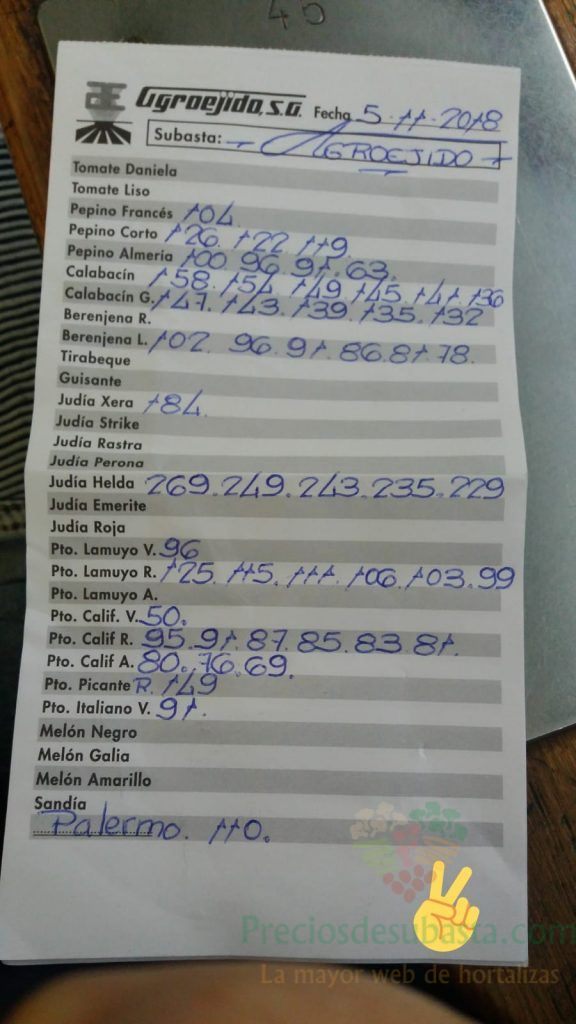 40
Agroejido, S.A. Fecha 5-11-2018
Subasta: AGROEJIDO
Tomate Daniela
Tomate Liso
Pepino Francés 104.
Pepino Corto 126. 122 119.
Pepino Almeria 100 96 91. 63.
Calabacín 158. 154 149 145. 141 136
Calabacín G. 147. 143. 139. 135. 132
Berenjena R.
Berenjena L. 102. 96. 91. 86. 81. 78.
Tirabeque
Guisante
Judía Xera 184.
Judía Strike
Judía Rastra
Judía Perona
Judía Helda 269. 249. 243. 235. 229
Judía Emerite
Judía Roja
Pto. Lamuyo V. 96
Pto. Lamuyo R. 125. 115. 111. 106. 103. 99
Pto. Lamuyo A.
Pto. Calif. V. 50.
Pto. Calif R. 95. 91. 87. 85. 83. 81.
Pto. Calif A. 80. 76. 69.
Pto. Picante R. 149
Pto. Italiano V. 91.
Melón Negro
Melón Galia
Melón Amarillo
Sandía
Palermo. 110.
Preciosdesubasta.com
La mayor web de hortalizas